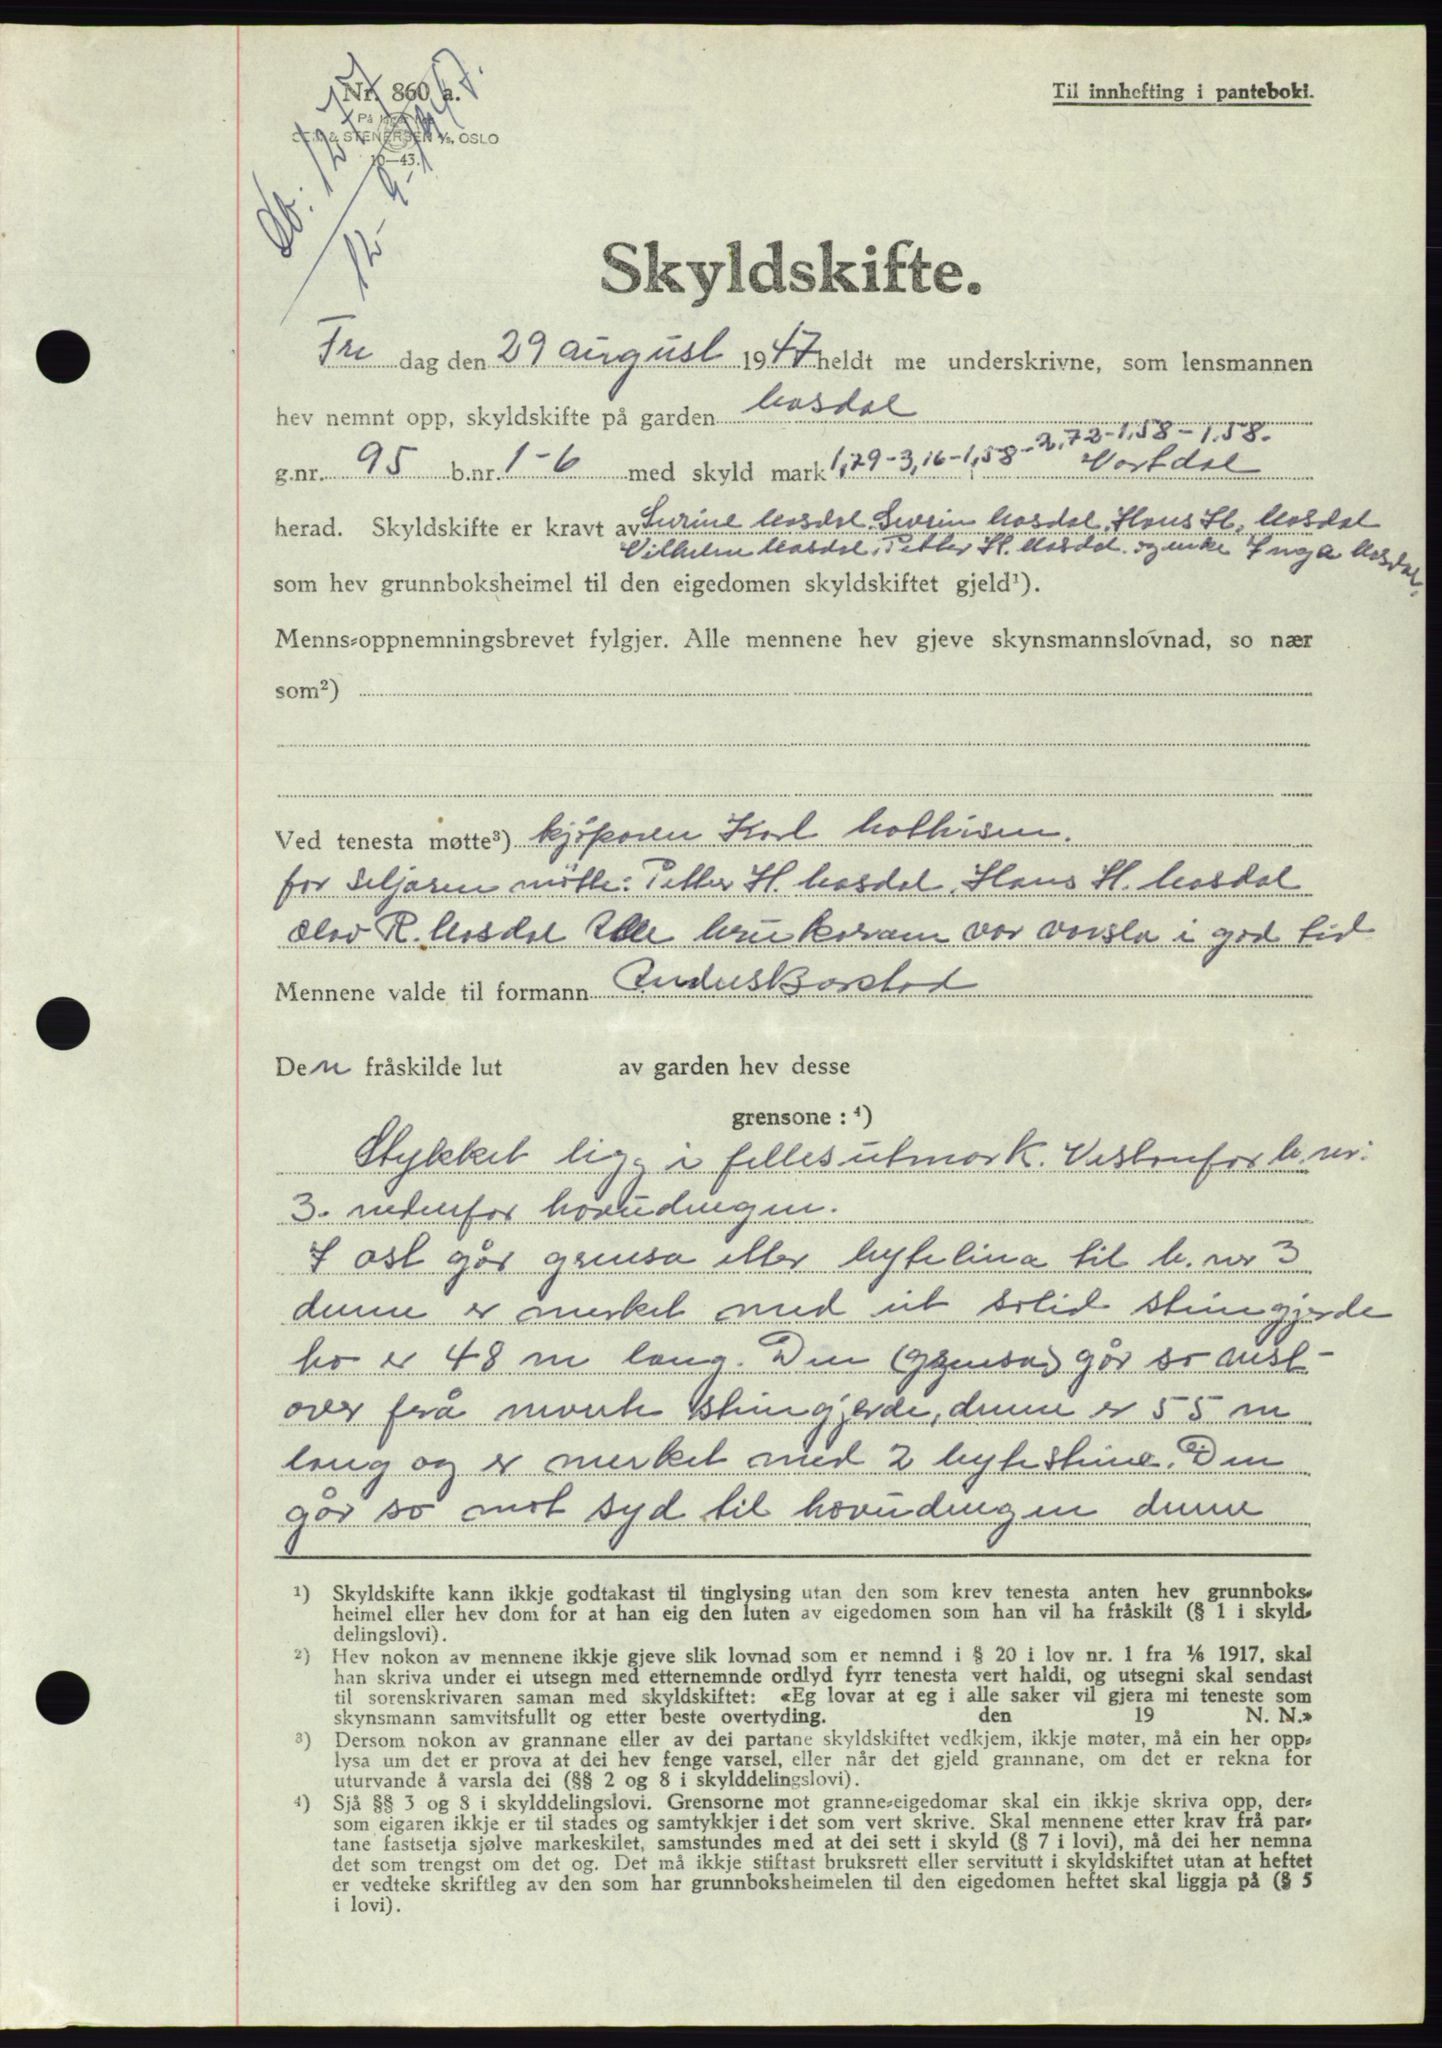 Nr. 860 a.
Til innhefting i panteboki.
STENERSEN A/S, OSLO
10—43.
Db. 1277
12-9-1947.
Skyldskifte.
Fre dag den 29 august 1947 heldt me underskrivne, som lensmannen
hev nemnt opp, skyldskifte på garden Masdal
g.nr. 95 b.nr. 1-6 med skyld mark 1,79-3,16-1,58-2,72-1,58-1,58. i Vartdal
herad. Skyldskifte er kravt av Surine Masdal, Severin Masdal, Hans H. Masdal
Vilhelm Masdal, Petter H. Masdal og enke Inga Masdal,
som hev grunnboksheimel til den eigedomen skyldskiftet gjeld¹).
Menns-oppnemningsbrevet fylgjer. Alle mennene hev gjeve skynsmannslovnad, so nær
som²)
Ved tenesta møtte³) kjöparen Karl
for seljaren mötte: Petter H. Masdal, Hans H. Masdal
Olav R. Masdal Alle brukaram var varsla i god tid
Mennene valde til formann Anders Barstad
Den fråskilde lut av garden hev desse
grensone: ⁴)
Stykket ligg i felles utmark. Vestenfor b.nr.
3. nedenfor hovudvegen.
I ost går grensa eller bytelina til b. nr 3
denne er merket med eit solid steingjerde
ho er 48 m lang. Den (grensa) går so vest-
over frå nevnte steingjerde, denne er 55 m
lang og er merket med 2 bytesteine. Den
går so mot syd til hovudvegen denne
¹) Skyldskifte kann ikkje godtakast til tinglysing utan den som krev tenesta anten hev grunnboks-
heimel eller hev dom for at han eig den luten av eigedomen som han vil ha fråskilt (§ 1 i skyld-
delingslovi).
²) Hev nokon av mennene ikkje gjeve slik lovnad som er nemnd i § 20 i lov nr. 1 fra 1/6 1917, skal
han skriva under ei utsegn med etternemnde ordlyd fyrr tenesta vert haldi, og utsegni skal sendast
til sorenskrivaren saman med skyldskiftet: «Eg lovar at eg i alle saker vil gjera mi teneste som
skynsmann samvitsfullt og etter beste overtyding. den 19 N. N.»
³) Dersom nokon av grannane eller av dei partane skyldskiftet vedkjem, ikkje møter, må ein her opp-
lysa um det er prova at dei hev fenge varsel, eller når det gjeld grannane, om det er rekna for
uturvande å varsla dei (§§ 2 og 8 i skylddelingslovi).
⁴) Sjå §§ 3 og 8 i skylddelingslovi. Grensorne mot granne-eigedomar skal ein ikkje skriva opp, der-
som eigaren ikkje er til stades og samtykkjer i det som vert skrive. Skal mennene etter krav frå par-
tane fastsetja sjølve markeskilet, samstundes med at dei sett i skyld (§ 7 i lovi), må dei her nemna
det som trengst om det og. Det må ikkje stiftast bruksrett eller servitutt i skyldskiftet utan at heftet
er vedteke skriftleg av den som har grunnboksheimelen til den eigedomen heftet skal liggja på (§ 5
i lovi).